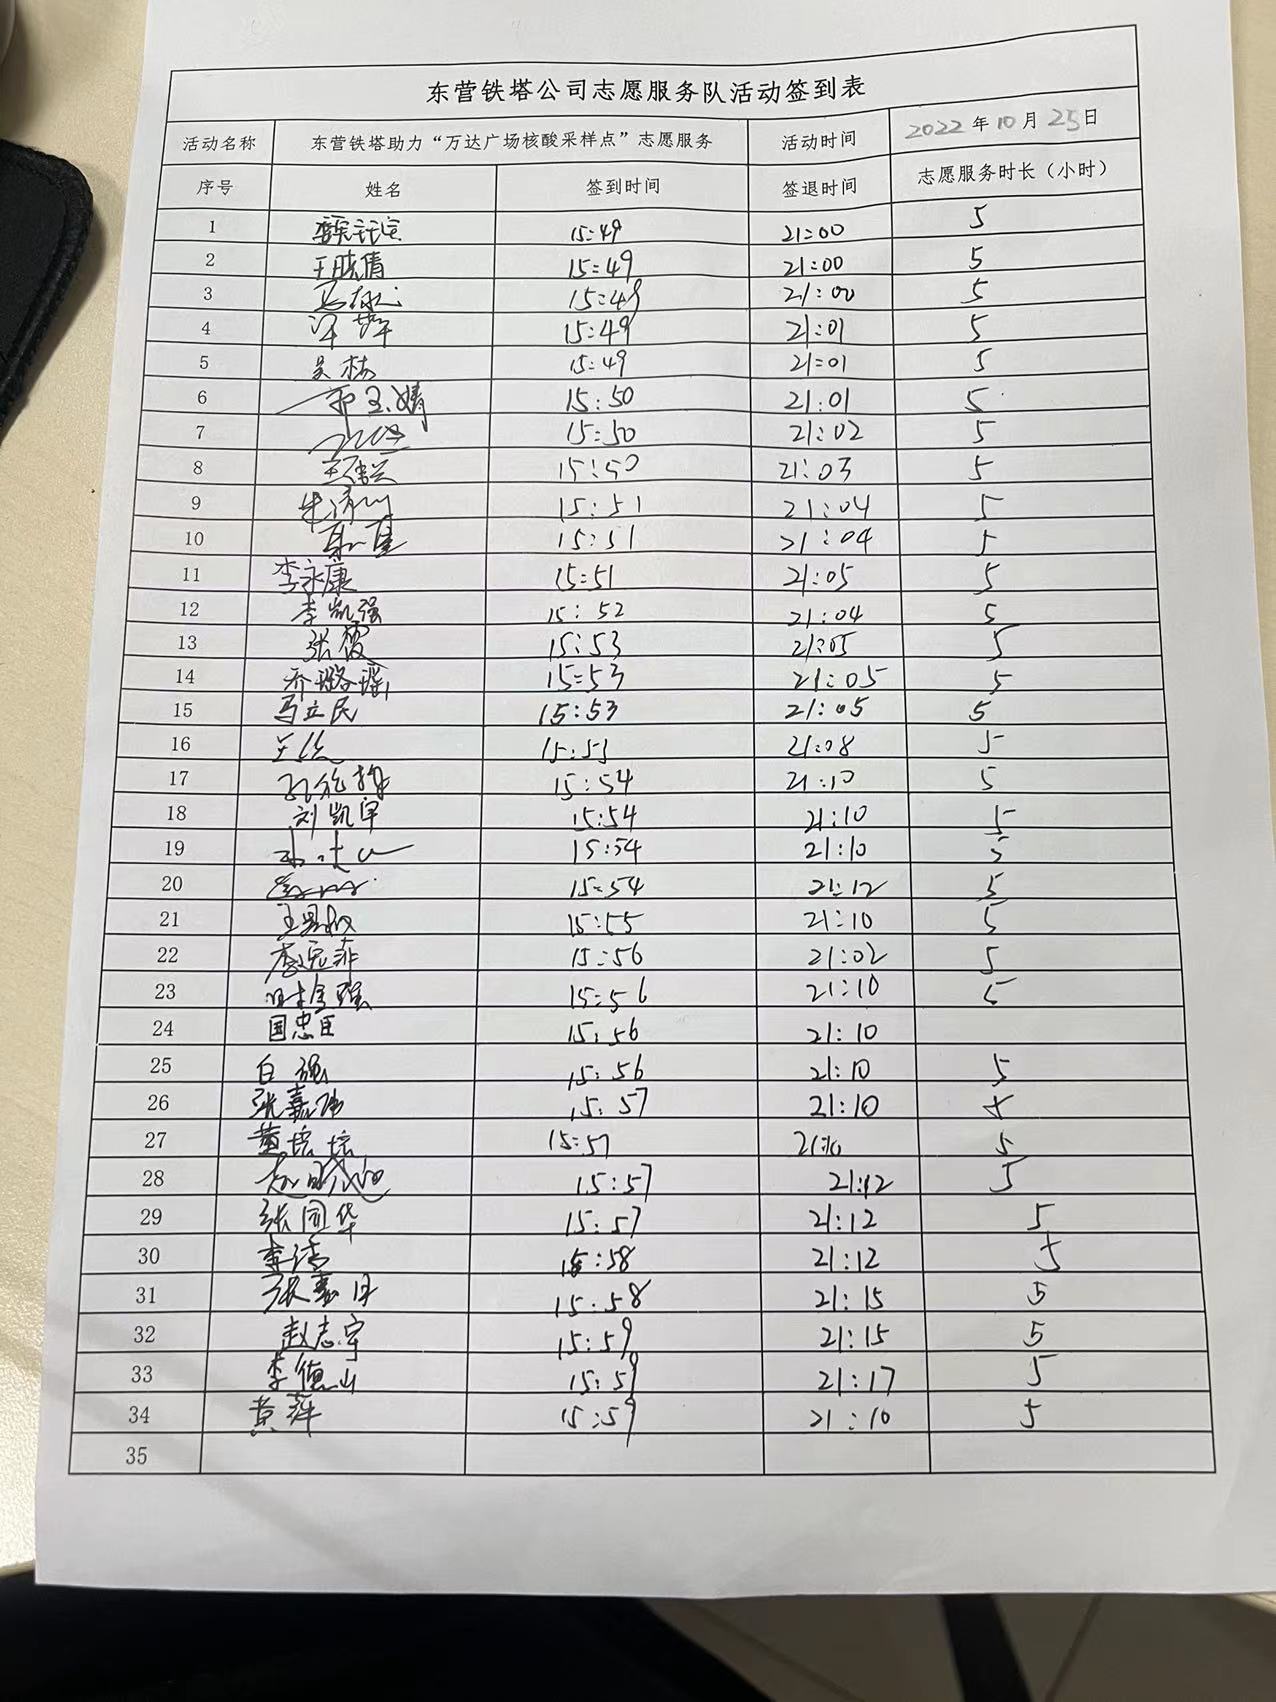 东营铁塔公司志愿服务队活动签到表
活动名称 东营铁塔助力“万达广场核酸采样点”志愿服务 活动时间 2022年10月25日
序号 姓名 签到时间 签退时间 志愿服务时长（小时）
1 15:49 21:00 5
2 王晓倩 15:49 21:00 5
3 15:49 21:00 5
4 15:49 21:01 5
5 吴杨 15:49 21:01 5
6 15:50 21:01 5
7 15:50 21:02 5
8 15:50 21:03 5
9 15:51 21:04 5
10 15:51 21:04 5
11 李永康 15:51 21:05 5
12 李凯强 15:52 21:04 5
13 张霞 15:53 21:05 5
14 乔璐瑶 15:53 21:05 5
15 马立民 15:53 21:05 5
16 15:53 21:08 5
17 15:54 21:10 5
18 刘凯宇 15:54 21:10 5
19 15:54 21:10 5
20 15:54 21:12 5
21 15:55 21:10 5
22 15:56 21:02 5
23 15:56 21:10 5
24 国忠臣 15:56 21:10
25 白强 15:56 21:10 5
26 张嘉伟 15:57 21:10
27 黄培培 15:57 21:10 5
28 15:57 21:12 5
29 张同华 15:57 21:12 5
30 李涛 15:58 21:12 5
31 15:58 21:15 5
32 赵志宇 15:59 21:15 5
33 李德山 15:59 21:17 5
34 黄萍 15:59 21:10 5
35